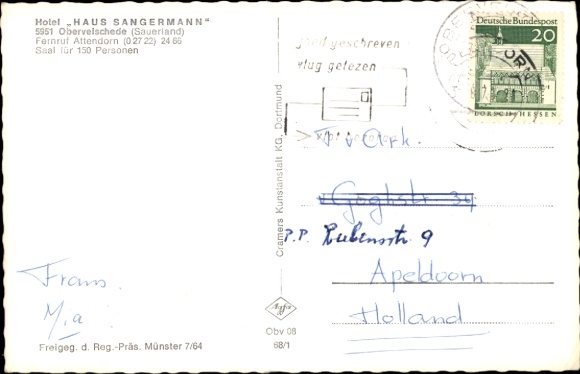 Hotel „HAUS SANGERMANN"
5951 Oberveischede (Sauerland)
Fernruf Attendorn (0 27 22) 24 66
Saal für 150 Personen
Deutsche Bundespost
20
LORSCH · HESSEN
goed geschreven
vlug gelezen
Cramers Kunstanstalt KG, Dortmund
Fr. v Ark.
v Goghstr 34
P.P. Rubensstr. 9
Apeldoorn
Holland
Frans.
Mia
Agfa
Obv 08
68/1
Freigeg. d. Reg.-Präs. Münster 7/64